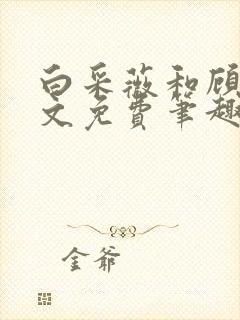 白采薇和顾
文免费笔趣
金爷